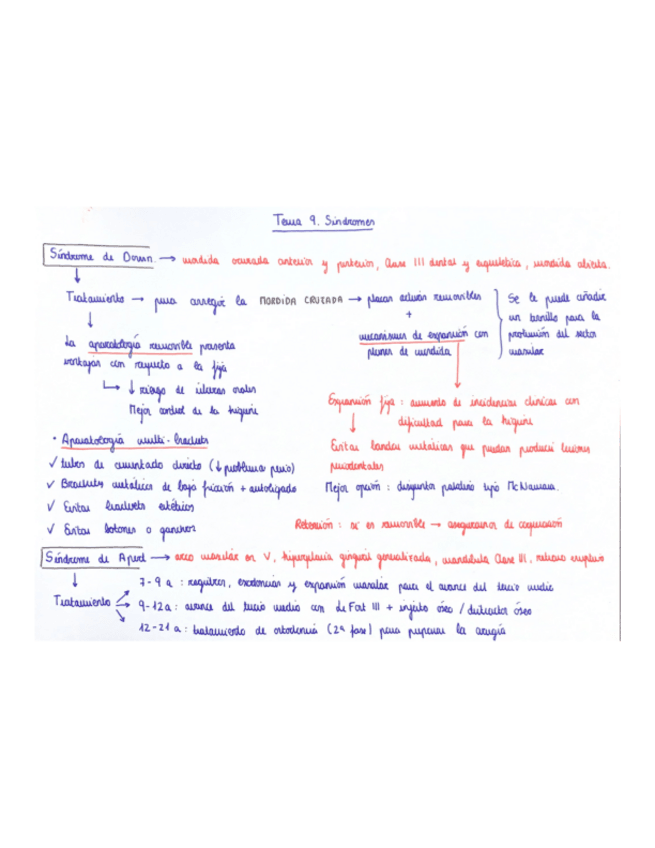 Tema 9. Síndromes
Síndrome de Down → mordida cruzada anterior y posterior, Clase III dental y esquelética, mordida abierta.
Tratamiento → para corregir la MORDIDA CRUZADA → placas activas removibles
+
mecanismos de expansión con
planos de mordida
Se le puede añadir
un tornillo para la
protrusión del sector
maxilar
La aparatología removible presenta
ventajas con respecto a la fija
↳ ↓ riesgo de úlceras orales
Mejor control de la higiene
Expansión fija: aumento de incidencias clínicas con
dificultad para la higiene
Evitar bandas metálicas que puedan producir lesiones
periodontales
Mejor opción: disyuntor palatino tipo McNamara.
Retención: si es removible → asegurarnos de cooperación
· Aparatología multi-brackets
✓ tubos de cementado directo (↓ problema perio)
✓ Brackets metálicos de baja fricción + autoligado
✓ Evitar brackets estéticos
✓ Evitar botones o ganchos
Síndrome de Apert → arco maxilar en V, hiperplasia gingival generalizada, mandíbula Clase III, retraso eruptivo
Tratamiento
7-9 a: registros, exodoncias y expansión maxilar para el avance del tercio medio
9-12a: avance del tercio medio con Le Fort III + injerto óseo / distractor óseo
12-21 a: tratamiento de ortodoncia (2ª fase) para preparar la cirugía